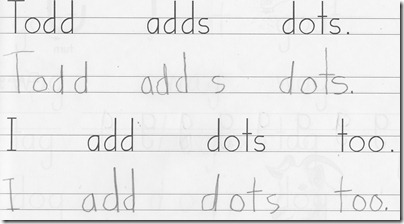 Todd adds dots.
Todd adds dots.
I add dots too.
I add dots too.